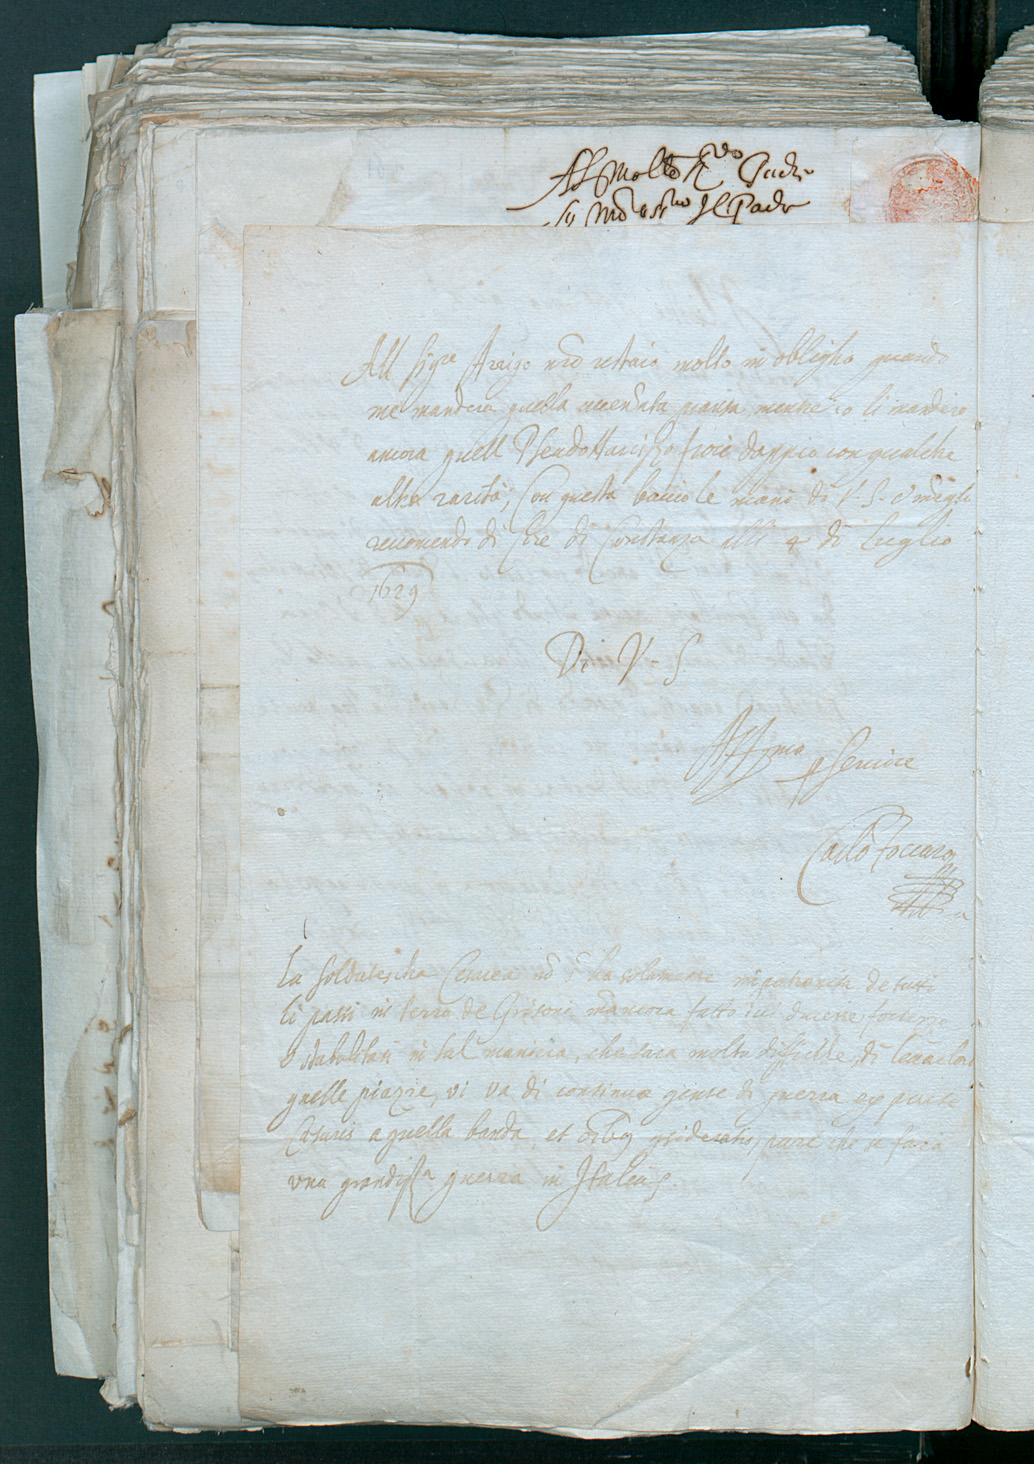 Al Molto R.do Padr
mio Il Padr
All Sig.re Arrigo nrõ restaro molto in obligho quando
me manderà quella accen̄ata pianta mentre io li mandero
ancora quell PseudoNarcisso fiore doppio con qualche
altra rarità; Con questa baccio le mani di V. S. e megli
recomendo di Cre di Constanza alli 4 di Luglio
1629
Di V S
Aff.mo Servire
Carlo
La soldatescha Cesarea nõ s'ha solamente inpatronita de tutti
li passi in terra de Grisoni mancora fatto ivi diverse fortezze
e stabilitasi in tal maniera, che sara molto difficile di
quelle piazze, vi va di continuo gente di guerra ex parte
Cæsaris a quella banda, et oībq consideratis, pare che si farà
una grandiss.a guerra in Italia.